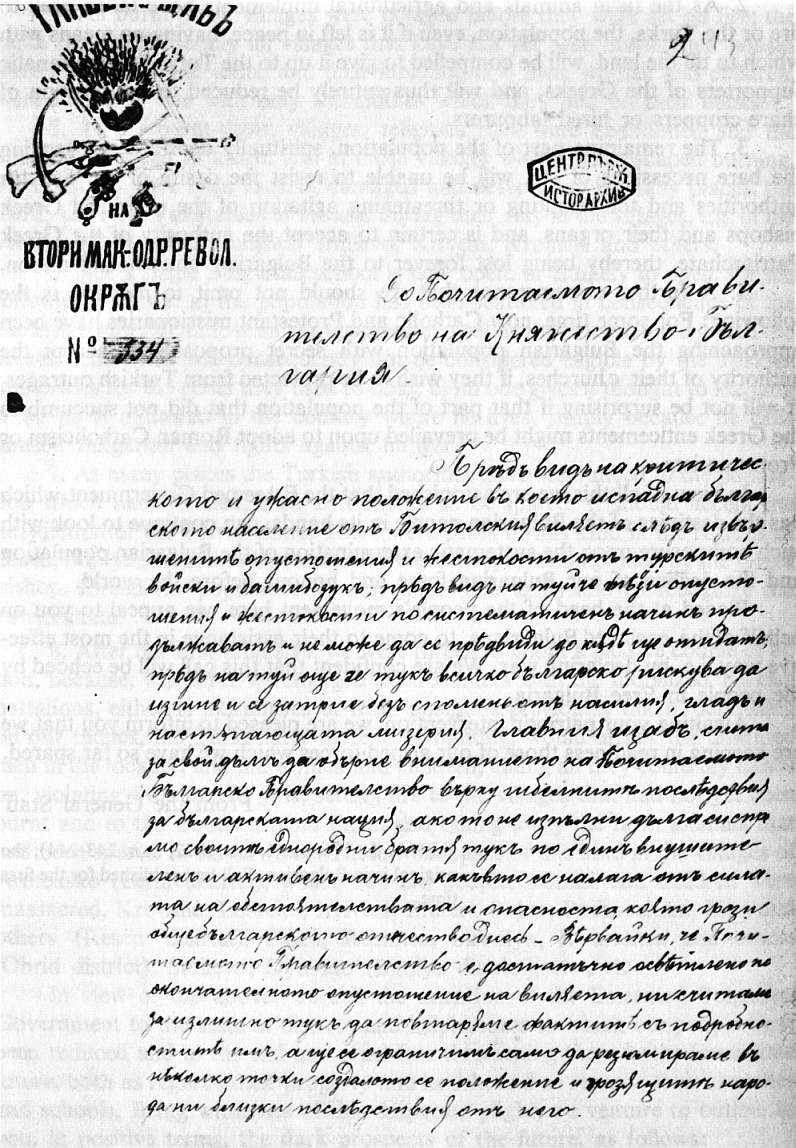 НА
ВТОРИ МАК-ОДР. РЕВОЛ.
ОКРѪГЪ
№ 534
ЦЕНТР. ДЪРЖ.
ИСТОР АРХИВ
До Почитаемото Прави-
телство на Княжество Бъл-
гария
Прѣдъ видъ на критичес-
кото и ужасно положение въ което испадна българ
ското население отъ Битолския вилаетъ слѣдъ извър-
шенитѣ опустошения и жестокости отъ турскитѣ
войски и башибозукъ; прѣдъ видъ на туй че тѣзи опусто-
шения и жестокости по систематиченъ начинъ про-
дължаватъ и не може да се прѣдвиди до кѫдѣ ще отидатъ;
прѣдъ на туй още че тукъ всичко българско рискува да
изгине и се затрие безъ споменъ отъ насилия, гладъ и
настѫпающата мизерия, Главния щабъ, счита
за свой дългъ да обърне вниманието на Почитаемото
Българско Правителство върху гибелнитѣ послѣдствия
за българската нация, ако то не изпълни дълга си спря
мо своитѣ еднородни братя тукъ по единъ внушите-
ленъ и активенъ начинъ, какъвто се налага отъ сила-
та на обстоятелствата и опасността, която грози
общебългарското отечество днесь – Вѣрвайки, че Почи-
таемото Правителство е достатъчно освѣтлено по
окончателното опустошение на вилаета, ний считаме
за излишно тукъ да повтаряме фактитѣ съ подробно-
ститѣ имъ, а ще се ограничимъ само да резюмираме въ
нѣколко точки создалото се положение и грозящитѣ наро-
да ни близки послѣдствия отъ него.